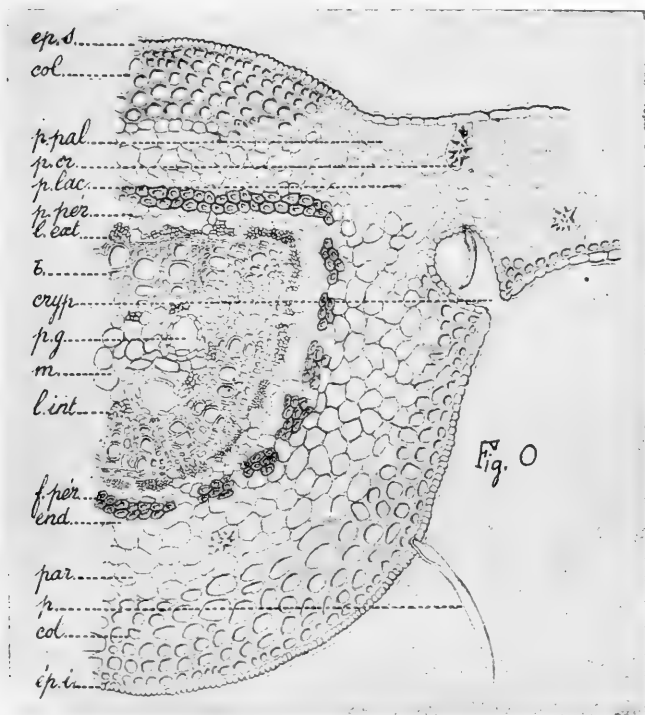 ep.s
col
p.pal
p.cr
p.lac
p.pér
l.ext
cryp
p.g
m.
l.int
Fig. O
f.pér
end
par
p.
col
ép.i